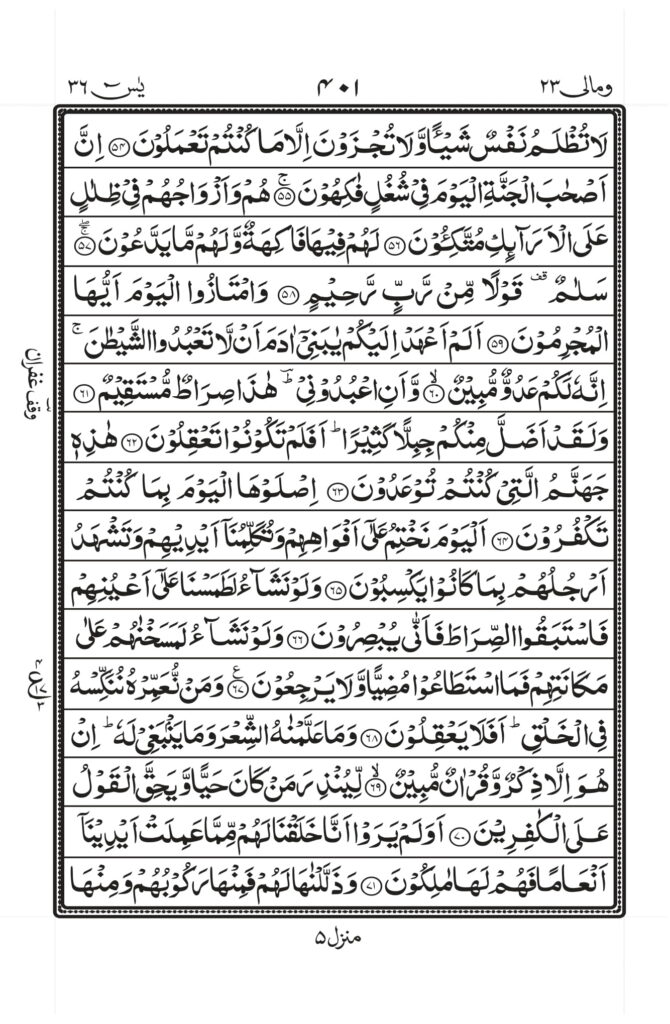 ومالی ۲۳
۴۰۱
یٰسٓ ۳۶
لَا تُظْلَمُ نَفْسٌ شَیْـًٔا وَّلَا تُجْزَوْنَ اِلَّا مَا كُنْتُمْ تَعْمَلُوْنَ ﴿۵۴﴾ اِنَّ
اَصْحٰبَ الْجَنَّةِ الْیَوْمَ فِیْ شُغُلٍ فٰكِهُوْنَ ﴿۵۵﴾ۚ هُمْ وَاَزْوَاجُهُمْ فِیْ ظِلٰلٍ
عَلَی الْاَرَآىِٕكِ مُتَّكِـُٔوْنَ ﴿۵۶﴾ لَهُمْ فِیْهَا فَاكِهَةٌ وَّلَهُمْ مَّا یَدَّعُوْنَ ﴿۵۷﴾ۚۖ
سَلٰمٌ قف قَوْلًا مِّنْ رَّبٍّ رَّحِیْمٍ ﴿۵۸﴾ وَامْتَازُوا الْیَوْمَ اَیُّهَا
الْمُجْرِمُوْنَ ﴿۵۹﴾ اَلَمْ اَعْهَدْ اِلَیْكُمْ یٰبَنِیْۤ اٰدَمَ اَنْ لَّا تَعْبُدُوا الشَّیْطٰنَ ۚ
اِنَّهٗ لَكُمْ عَدُوٌّ مُّبِیْنٌ ﴿۶۰﴾ۙ وَّاَنِ اعْبُدُوْنِیْ ؔؕ هٰذَا صِرَاطٌ مُّسْتَقِیْمٌ ﴿۶۱﴾
وَلَقَدْ اَضَلَّ مِنْكُمْ جِبِلًّا كَثِیْرًا ؕ اَفَلَمْ تَكُوْنُوْا تَعْقِلُوْنَ ﴿۶۲﴾ هٰذِهٖ
جَهَنَّمُ الَّتِیْ كُنْتُمْ تُوْعَدُوْنَ ﴿۶۳﴾ اِصْلَوْهَا الْیَوْمَ بِمَا كُنْتُمْ
تَكْفُرُوْنَ ﴿۶۴﴾ اَلْیَوْمَ نَخْتِمُ عَلٰۤی اَفْوَاهِهِمْ وَتُكَلِّمُنَاۤ اَیْدِیْهِمْ وَتَشْهَدُ
اَرْجُلُهُمْ بِمَا كَانُوْا یَكْسِبُوْنَ ﴿۶۵﴾ وَلَوْ نَشَآءُ لَطَمَسْنَا عَلٰۤی اَعْیُنِهِمْ
فَاسْتَبَقُوا الصِّرَاطَ فَاَنّٰی یُبْصِرُوْنَ ﴿۶۶﴾ وَلَوْ نَشَآءُ لَمَسَخْنٰهُمْ عَلٰی
مَكَانَتِهِمْ فَمَا اسْتَطَاعُوْا مُضِیًّا وَّلَا یَرْجِعُوْنَ ﴿۶۷﴾ وَمَنْ نُّعَمِّرْهُ نُنَكِّسْهُ
فِی الْخَلْقِ ؕ اَفَلَا یَعْقِلُوْنَ ﴿۶۸﴾ وَمَا عَلَّمْنٰهُ الشِّعْرَ وَمَا یَنْۢبَغِیْ لَهٗ ؕ اِنْ
هُوَ اِلَّا ذِكْرٌ وَّقُرْاٰنٌ مُّبِیْنٌ ﴿۶۹﴾ۙ لِّیُنْذِرَ مَنْ كَانَ حَیًّا وَّیَحِقَّ الْقَوْلُ
عَلَی الْكٰفِرِیْنَ ﴿۷۰﴾ اَوَلَمْ یَرَوْا اَنَّا خَلَقْنَا لَهُمْ مِّمَّا عَمِلَتْ اَیْدِیْنَاۤ
اَنْعَامًا فَهُمْ لَهَا مٰلِكُوْنَ ﴿۷۱﴾ وَذَلَّلْنٰهَا لَهُمْ فَمِنْهَا رَكُوْبُهُمْ وَمِنْهَا
وقف غفران
منزل ۵